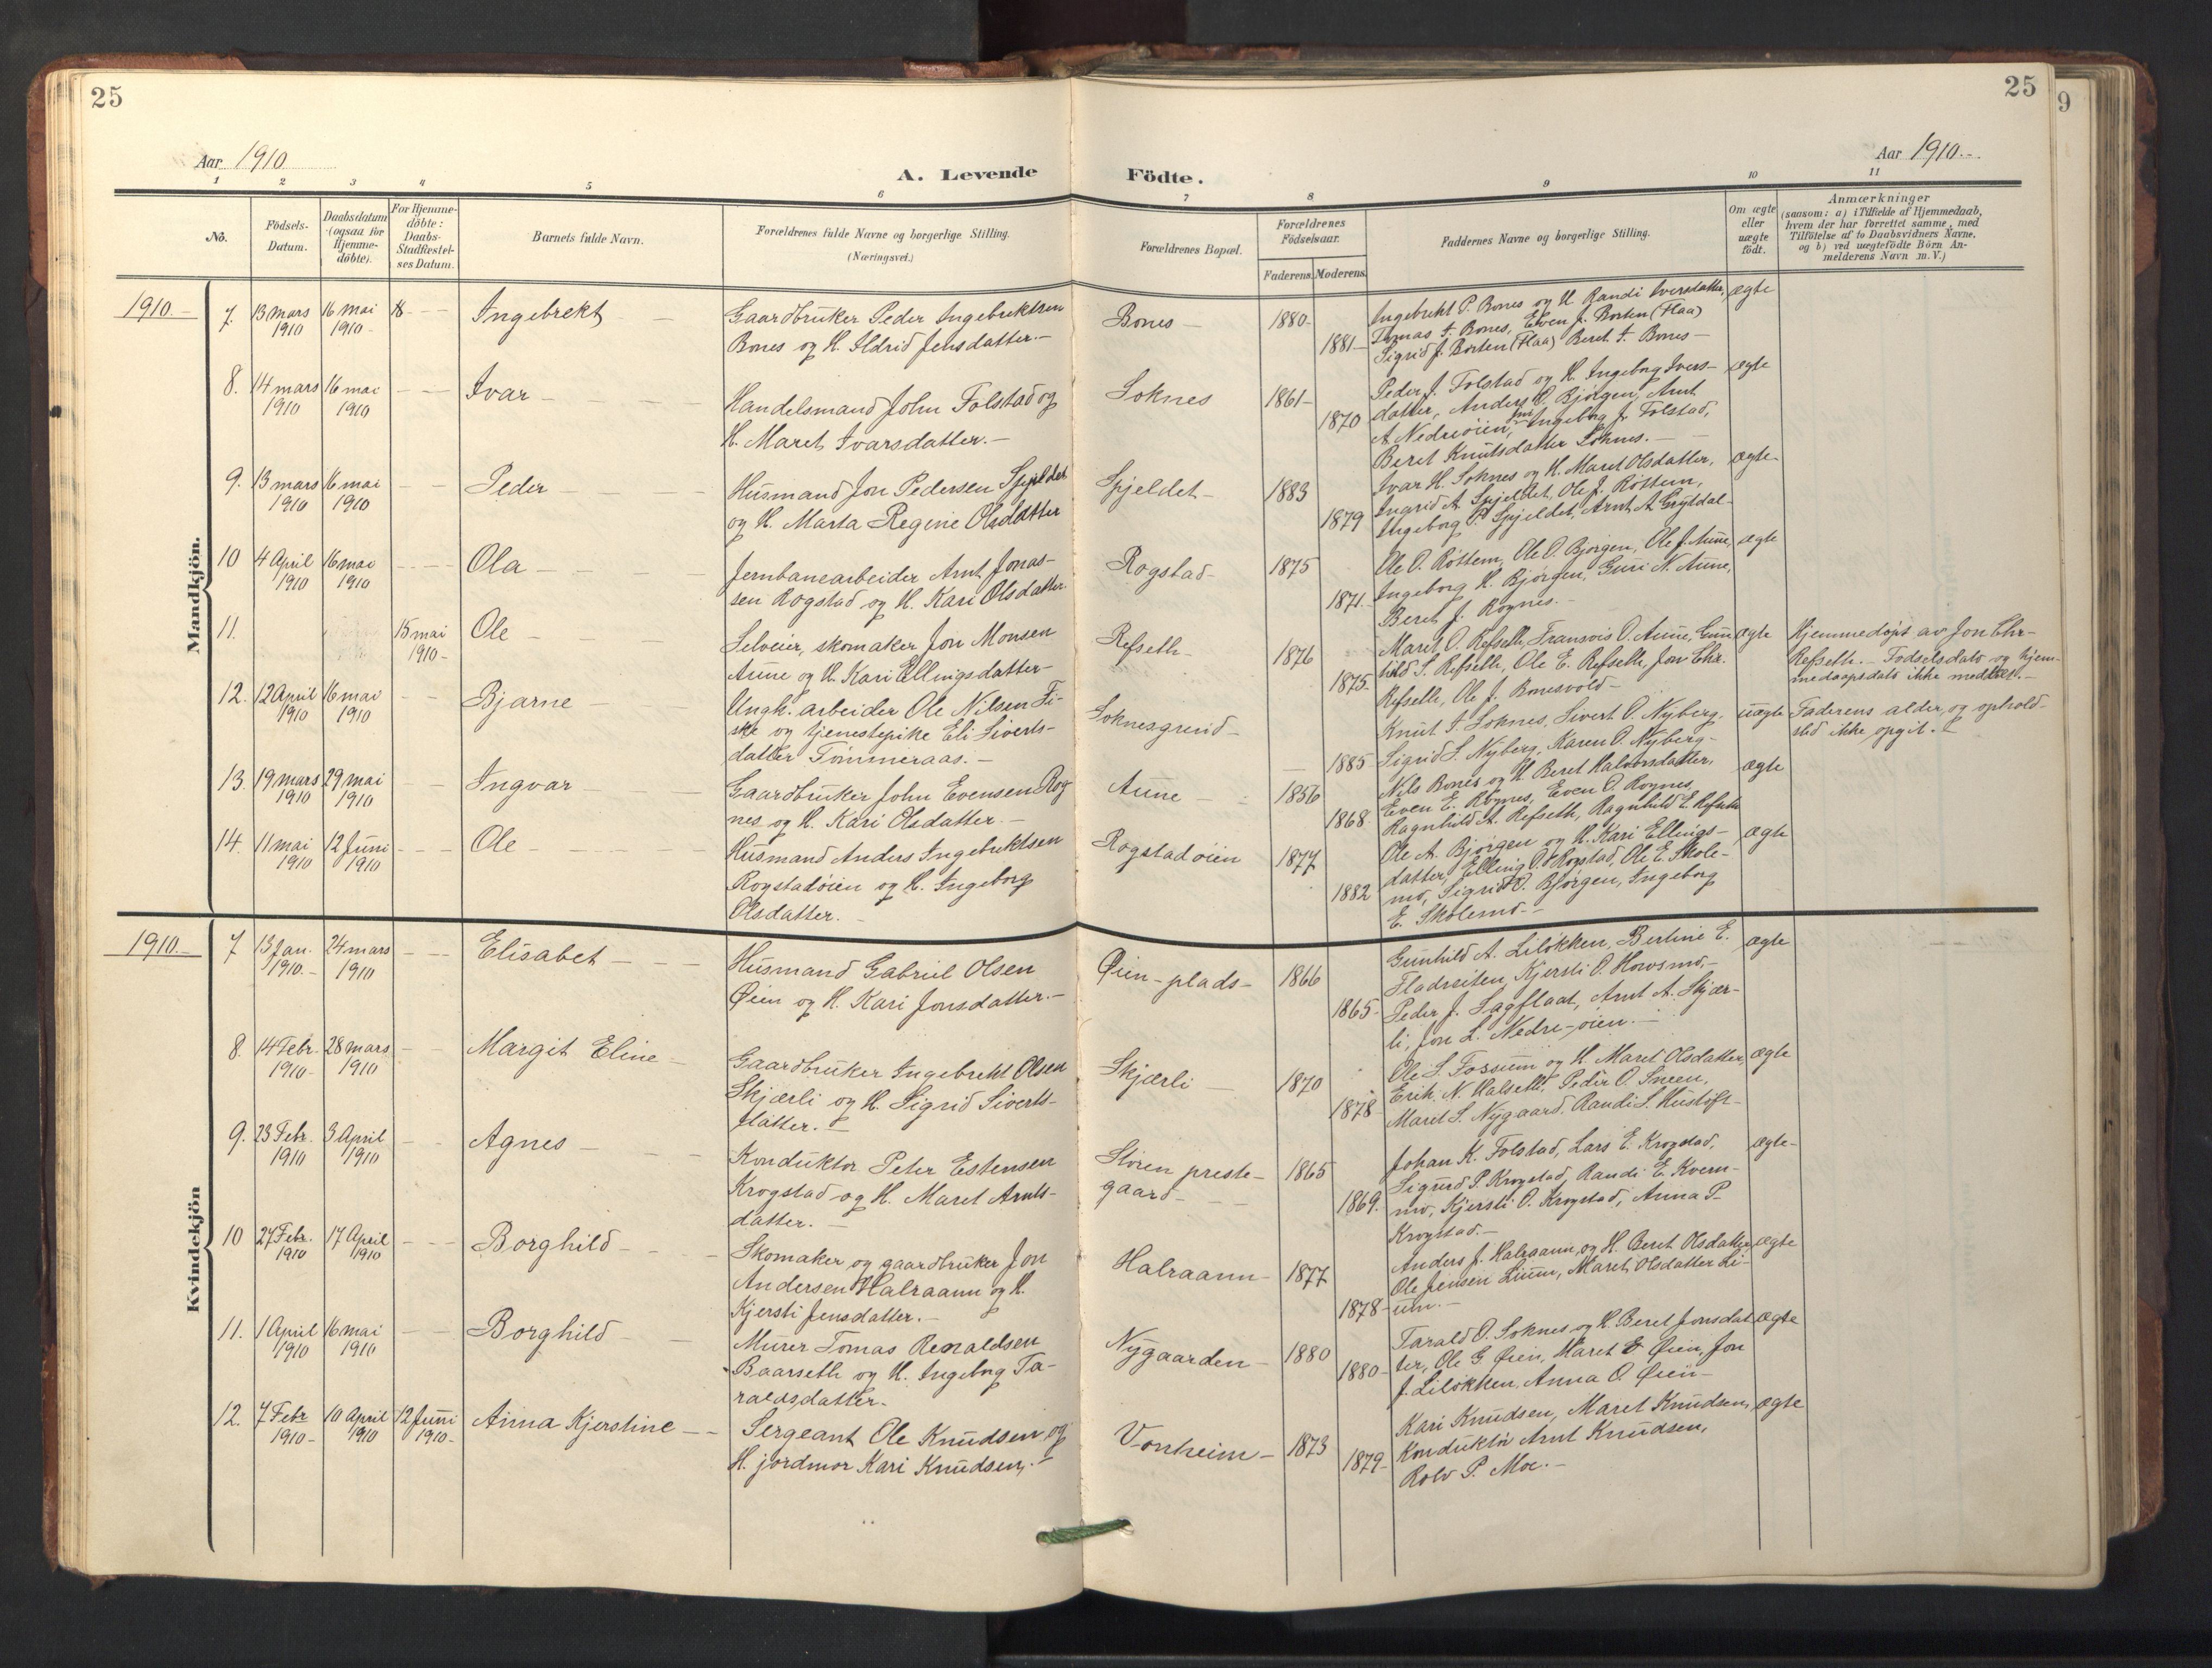 25
25
9
Aar 1910
A. Levende
Födte.
Aar 1910.-
1 2 3 4 5 6 7 8 9 10 11
No.
Födsels-
Datum.
Daabsdatum
(ogsaa for
Hjemme-
döbte).
For Hjemme-
döbte:
Daabs-
Stadfæstel-
ses Datum.
Barnets fulde Navn.
Forældrenes fulde Navne og borgerlige Stilling.
(Næringsvei.)
Forældrenes Bopæl.
Forældrenes
Födselsaar.
Faderens. Moderens.
Faddernes Navne og borgerlige Stilling.
Om ægte
eller
uægte
födt.
Anmærkninger
(saasom: a) i Tilfælde af Hjemmedaab,
hvem der har forrettet samme, med
Tilföielse af to Daabsvidners Navne,
og b) ved uægtefödte Börn An-
melderens Navn m. V.)
Mandkjön.
1910.-
7. 13 mars 1910
16 mai 1910-
Ingebrekt
Gaardbruker Peder Ingebrektsen
Bones og H. Ildrid Jensdatter.-
Bones-
1880-
1881-
Ingebrekt P. Bones og H. Randi Iversdatter,
Tomas I. Bones, Even J. Borten (Flaa)
Sigrid J. Borten (Flaa) Beret I. Bones-
ægte
8. 14 mars 1910
16 mai 1910
Ivar
Handelsmand John Folstad og
H. Maret Ivarsdatter.-
Soknes
1861-
1870
Peder J. Folstad og H. Ingeborg Ivers-
datter, Anders O. Bjørgen, Arnt
A Nedreøien, Ingeborg J. Folstad,
Beret Knutsdatter Soknes.-
ægte
9. 13 mars 1910
16 mai 1910
Peder
Husmand Jon Pedersen Spjeldet
og H. Marta Regine Olsdatter
Spjeldet-
1883
1879
Ivar H. Soknes og H. Maret Olsdatter,
Ingrid A Spjeldet, Ole J. Rostem,
Ingeborg P. Spjeldet, Arnt A Grytdal-
ægte-
10 4 April 1910
16 mai 1910
Ola
Jernbanearbeider Arnt Jonas-
sen Rogstad og H. Kari Olsdatter.
Rogstad-
1875
1871.-
Ole O. Rostem, Ole O. Bjørgen, Ole J. Aune,
Ingeborg H. Bjørgen, Guri N. Aune,
Beret J. Rognes.-
ægte
11.
15 mai 1910-
Ole
Selveier, skomaker Jon Monsen
Aune og H. Kari Ellingsdatter-
Refseth-
1876
1875-
Maret O. Refseth, Fransois O. Aune, Gun-
hild S. Refseth, Ole E. Refseth, Jon Chr.
Refseth, Ole J. Bonesvold-
ægte
Hjemmedøpt av Jon Chr-
Refseth.- Fødselsdato og hjem-
medaapsdato ikke meddelt.-
12. 12 April 1910
16 mai 1910
Bjarne
Ungk. arbeider Ole Nilsen Fi-
ske og tjenestepike Eli Siverts-
datter Tømmeraas.-
Soknesgrind-
1885
Knut I Soknes, Sivert O. Nyberg,
Sigrid S. Nyberg, Karen O. Nyberg-
uægte
Faderens alder og ophold-
sted ikke opgit.
13. 19 mars 1910
29 mai 1910
Ingvar
Gaardbruker John Evensen Rog
nes og H. Kari Olsdatter.-
Aune
1856
1868
Nils Bones og H Beret Halvorsdatter,
Even E. Rognes, Even O. Rognes,
Ragnhild A. Refseth, Ragnhild E. Refseth
ægte
14. 11 mai 1910
12 Juni 1910
Ole
Husmand Anders Ingebrektsen
Rogstadøien og H. Ingeborg
Olsdatter.
Rogstadøien
1877
1882
Ole A. Bjørgen og H. Kari Ellings-
datter, Elling O. Rogstad, Ole E. Skole-
mo, Sigrid O. Bjørgen, Ingeborg
E. Skolemo-
ægte
Kvindekjön
1910.-
7 13 Jan. 1910.-
24 mars 1910
Elisabet
Husmand Gabriel Olsen
Øien og H. Kari Jonsdatter.-
Øien-plads-
1866
1865-
Gunhild A. Liløkken, Berline E.
Fladreiten, Kjersti O. Hovsmo,-
Peder J. Sagflaat, Arnt A. Skjær-
li, Jon L. Nedre-øien.-
ægte
8. 14 Febr. 1910-
28 mars 1910
Margit Eline
Gaardbruker Ingebrekt Olsen
Skjærli og H. Sigrid Siverts-
datter.-
Skjærli
1870
1878
Ole S. Fossum og H. Maret Olsdatter,
Erik N. Halseth, Peder O. Sneen,
Maret S. Nygaard, Randi S. Hustoft-
ægte
9. 23 Febr. 1910
3 April 1910
Agnes
Konduktør Peter Estensen
Krogstad og H. Maret Arnts-
datter.-
Støren preste-
gaard-
1865
1869.
Johan K. Folstad, Lars E. Krogstad,
Sigurd P. Krogstad, Randi E. Kvern-
mo, Kjersti O. Krogstad, Anna P.
Krogstad.-
ægte-
10 27 Febr. 1910
17 April 1910
Borghild
Skomaker og gaardbruker Jon
Andersen Halraaen og H.
Kjersti Jensdatter.-
Halraaen
1877
1878
Anders J. Halraaen og H. Beret Olsdatter,
Ole Jensen Lium, Maret Olsdatter Li-
um.-
ægte
11. 1 April 1910
16 mai 1910
Borghild
Murer Tomas Renaldsen
Baarseth og H. Ingeborg Ta-
raldsdatter.
Nygaarden
1880
1880
Tarald O. Soknes og H. Beret Jonsdat-
ter, Ole G Øien, Maret E Øien, Jon
J. Liløkken, Anna O Øien-
ægte
12. 7 Febr 1910-
10 April 1910
12 Juni 1910-
Anna Kjerstine
Sergeant Ole Knudsen og
H. jordmor Kari Knudsen.-
Vonheim-
1873
1879-
Kari Knudsen, Maret Knudsen,
Konduktør Arnt Knudsen,
Rolv P. Moe.-
ægte